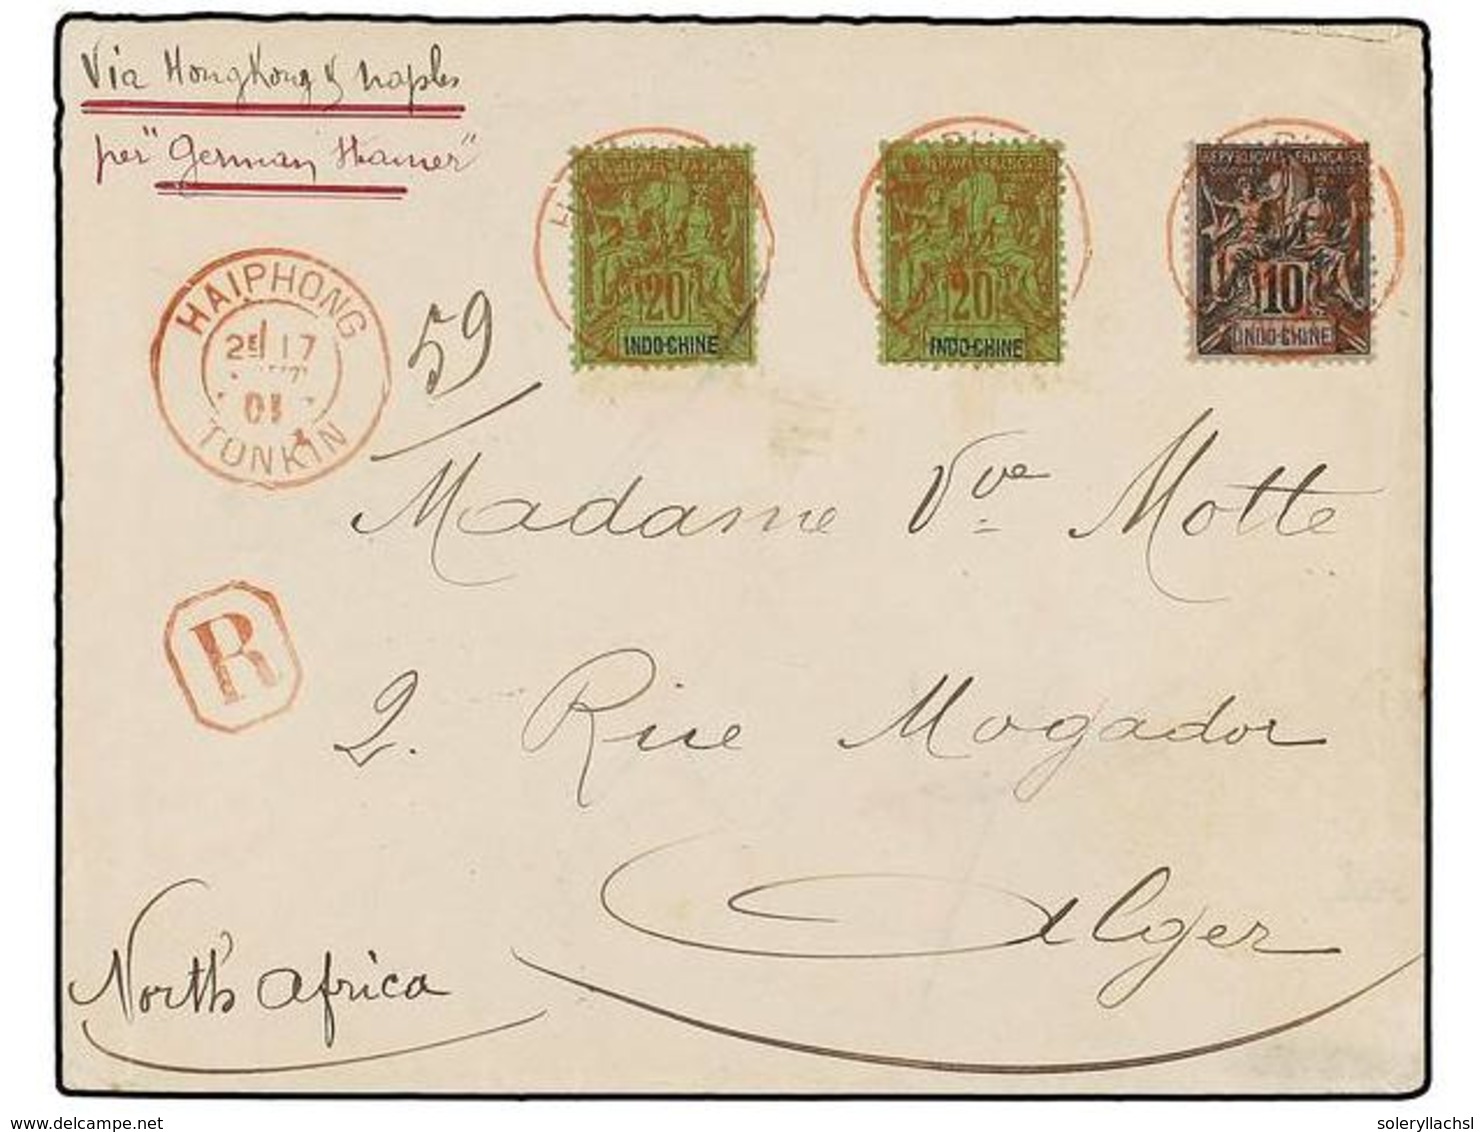 Via Hongkong & naples
per "German Steamer"
REPVBLIQVE FRANÇAISE
20
INDO-CHINE
20
INDO-CHINE
10
INDO-CHINE
HAIPHONG
2E 17
01
TONKIN
59
Madame Vve Motte
R
2. Rue Mogador
Alger
North Africa
www.delcampe.net
soleryllachsl